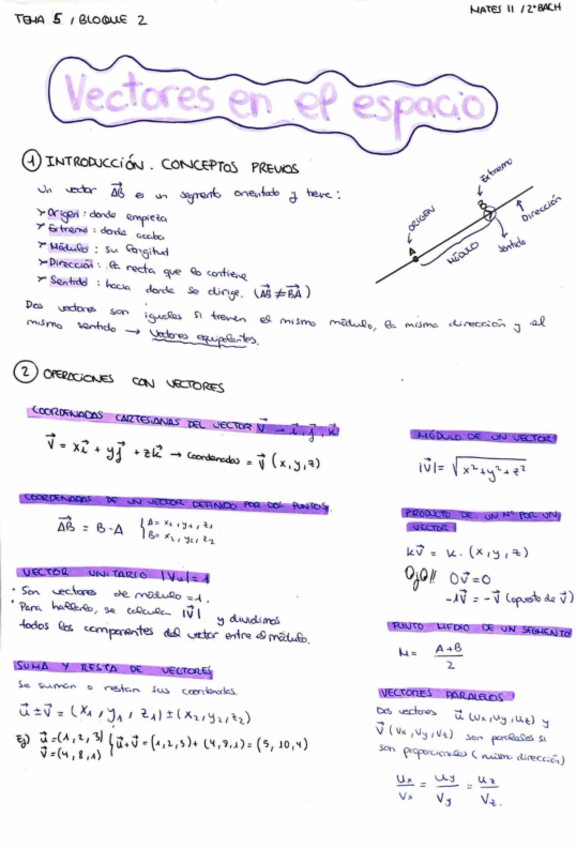 TEMA 5 / BLOQUE 2
MATES II / 2º BACH
Vectores en el espacio
① INTRODUCCIÓN. CONCEPTOS PREVIOS
Un vector AB⃗ es un segmento orientado y tiene:
> Origen: donde empieza
> Extremo: donde acaba
> Módulo: su longitud
> Dirección: la recta que lo contiene
> Sentido: hacia donde se dirige. (AB⃗ ≠ BA⃗)
ORIGEN
A
MÓDULO
B
Extremo
Dirección
Sentido
Dos vectores son iguales si tienen el mismo módulo, la misma dirección y el
mismo sentido → Vectores equipolentes.
② OPERACIONES CON VECTORES
COORDENADAS CARTESIANAS DEL VECTOR V⃗ → i⃗, j⃗, k⃗
v⃗ = xi⃗ + yj⃗ + zk⃗ → Coordenadas = v⃗ (x, y, z)
COORDENADAS DE UN VECTOR DEFINIDO POR DOS PUNTOS
AB⃗ = B - A { A = x₁, y₁, z₁
B = x₂, y₂, z₂
VECTOR UNITARIO |Vu| = 1
· Son vectores de módulo = 1.
· Para hallarlo, se calcula |V⃗| y dividimos
todos los componentes del vector entre el módulo.
SUMA Y RESTA DE VECTORES
Se suman o restan sus coordenadas.
u⃗ ± v⃗ = (x₁, y₁, z₁) ± (x₂, y₂, z₂)
Ej) u⃗ = (1, 2, 3)
v⃗ = (4, 8, 1) } u⃗ + v⃗ = (1, 2, 3) + (4, 8, 1) = (5, 10, 4)
MÓDULO DE UN VECTOR
|V⃗| = √x² + y² + z²
PRODUCTO DE UN Nº POR UN
VECTOR
kv⃗ = k · (x, y, z)
OJO!! 0v⃗ = 0
-1v⃗ = -v⃗ (opuesto de v⃗)
PUNTO MEDIO DE UN SEGMENTO
M = A+B / 2
VECTORES PARALELOS
Dos vectores u⃗ (ux, uy, uz) y
v⃗ (vx, vy, vz) son paralelos si
son proporcionales (misma dirección)
ux/vx = uy/vy = uz/vz.